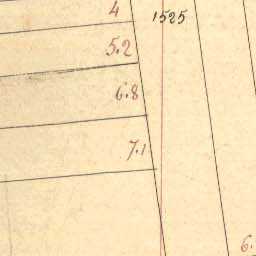 4
1525
5.2
6.8
7.1
6.